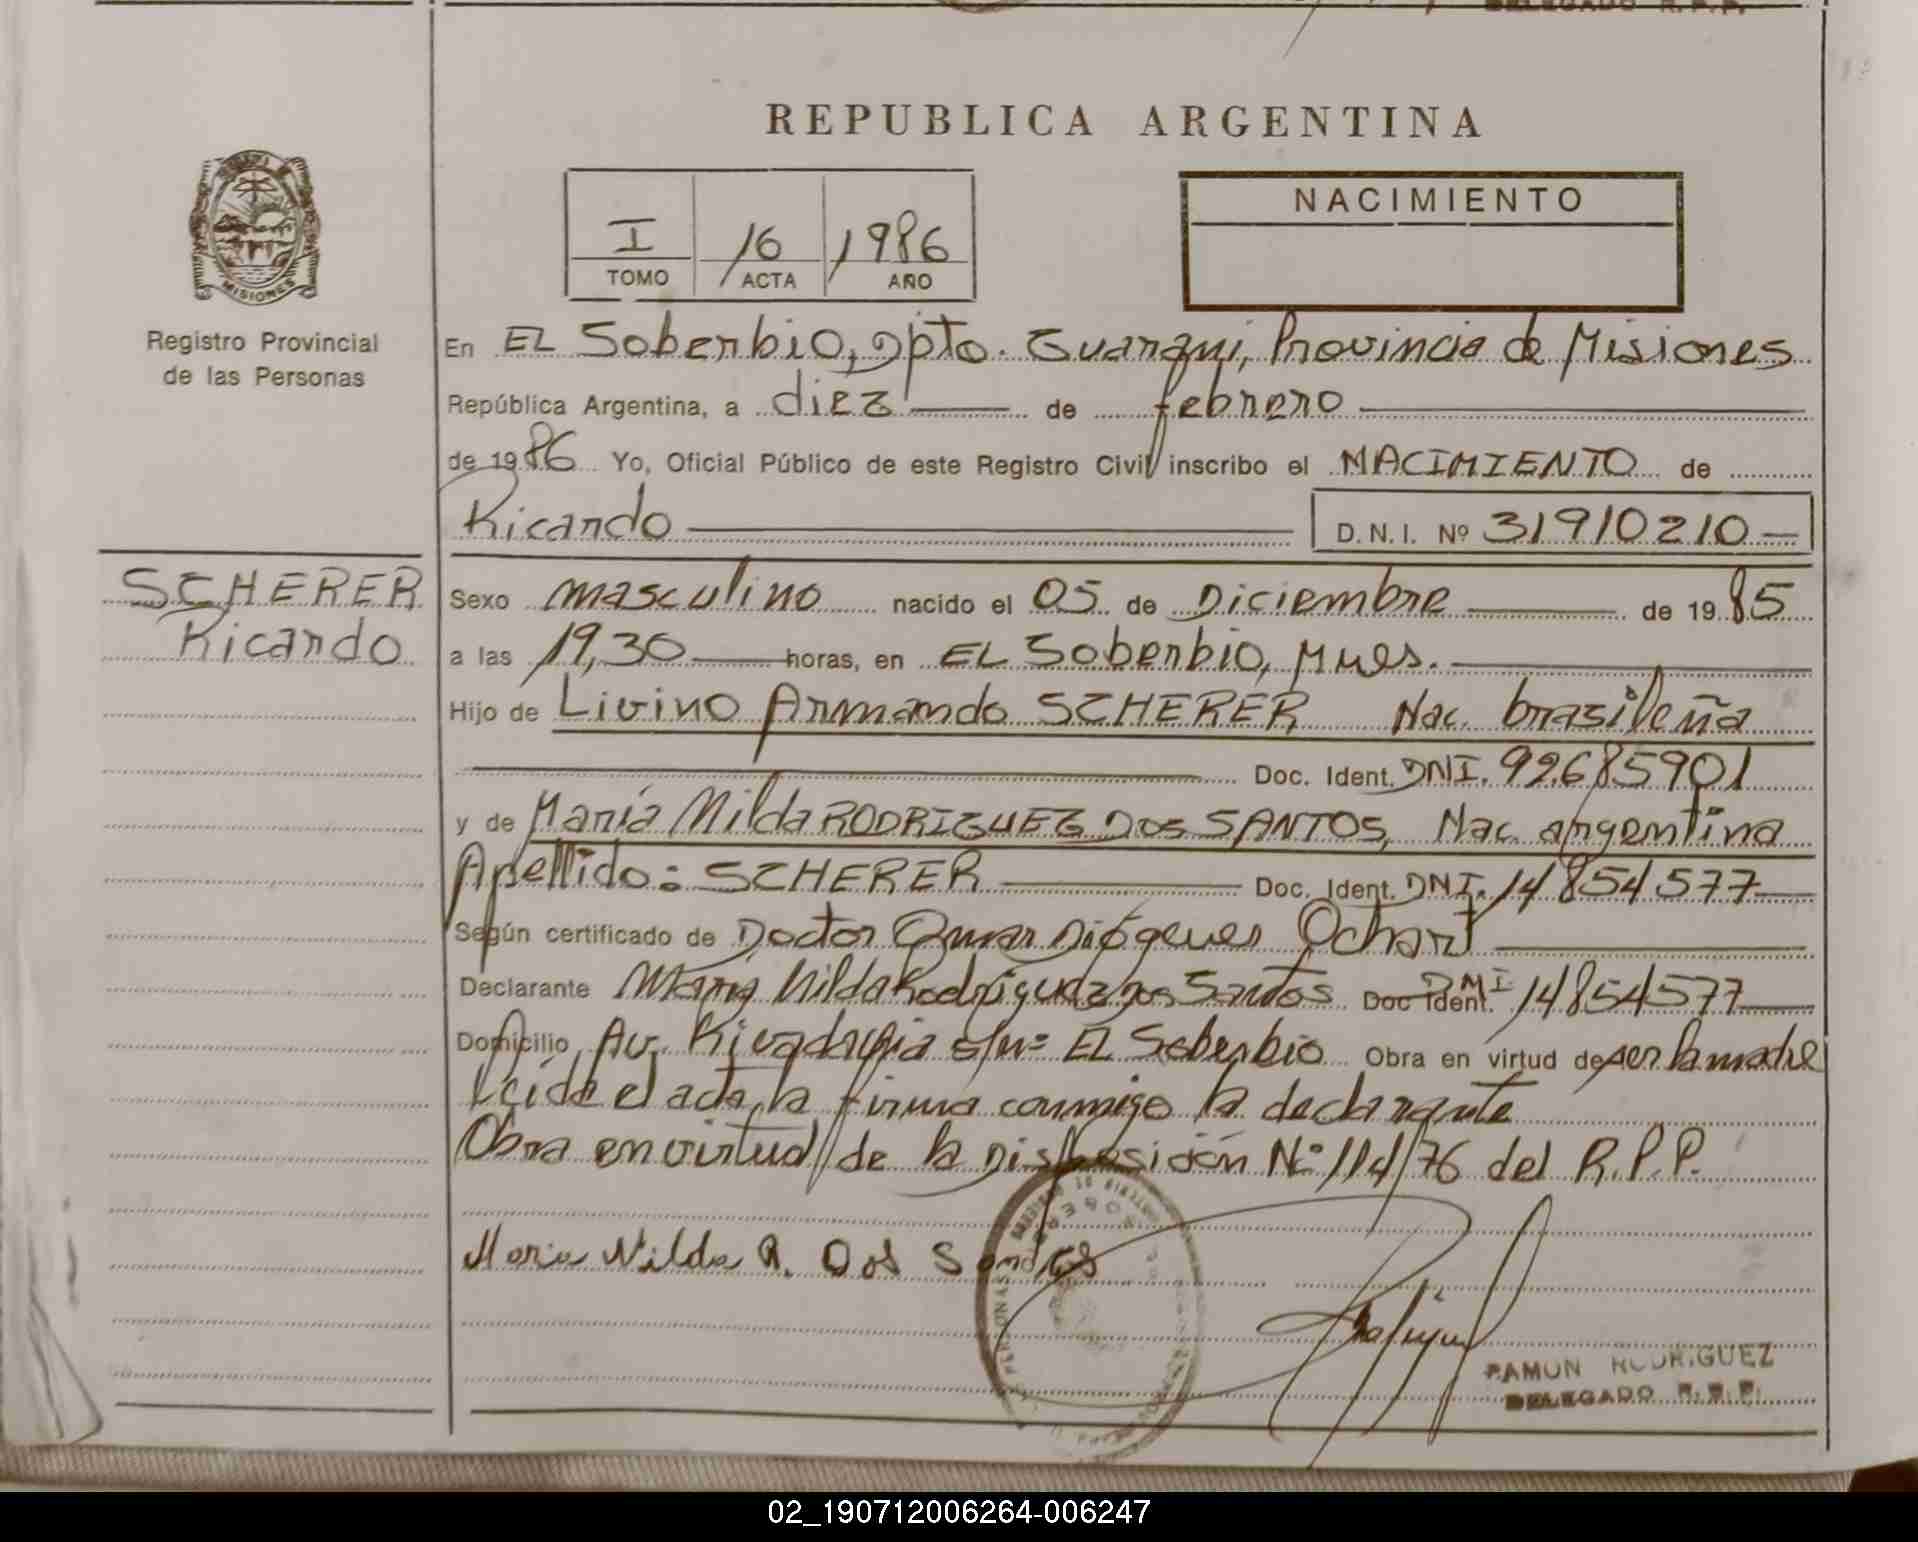 DELEGADO R.P.P.
REPUBLICA ARGENTINA
MISIONES
Registro Provincial
de las Personas
I 16 1986
TOMO ACTA AÑO
NACIMIENTO
En EL Soberbio, Dpto. Guarani, Provincia de Misiones
República Argentina, a diez de febrero
de 1986 Yo, Oficial Público de este Registro Civil inscribo el NACIMIENTO de
Ricardo D.N.I. Nº 31910210
SCHERER
Ricardo
Sexo masculino nacido el 05 de Diciembre de 1985
a las 19,30 horas, en EL Soberbio, Mnes.
Hijo de Livino Armando SCHERER Nac. brasileña
Doc. Ident. DNI. 92.685901
y de María Nilda RODRIGUEZ DOS SANTOS, Nac. argentina
Apellido: SCHERER Doc. Ident. DNI. 14854577
Según certificado de Doctor Omar Diógenes Ochart
Declarante María Nilda Rodriguez dos Santos Doc Ident. DNI 14854577
Domicilio Av. Rivadavia s/nº EL Soberbio Obra en virtud de ser la madre
Leída el acta, la firma conmigo la declarante
Obra en virtud de la Disposición Nº 114/76 del R.P.P.
Maria Nilda R. Dos Santos
RAMON RODRIGUEZ
DELEGADO R.P.P.
02_190712006264-006247